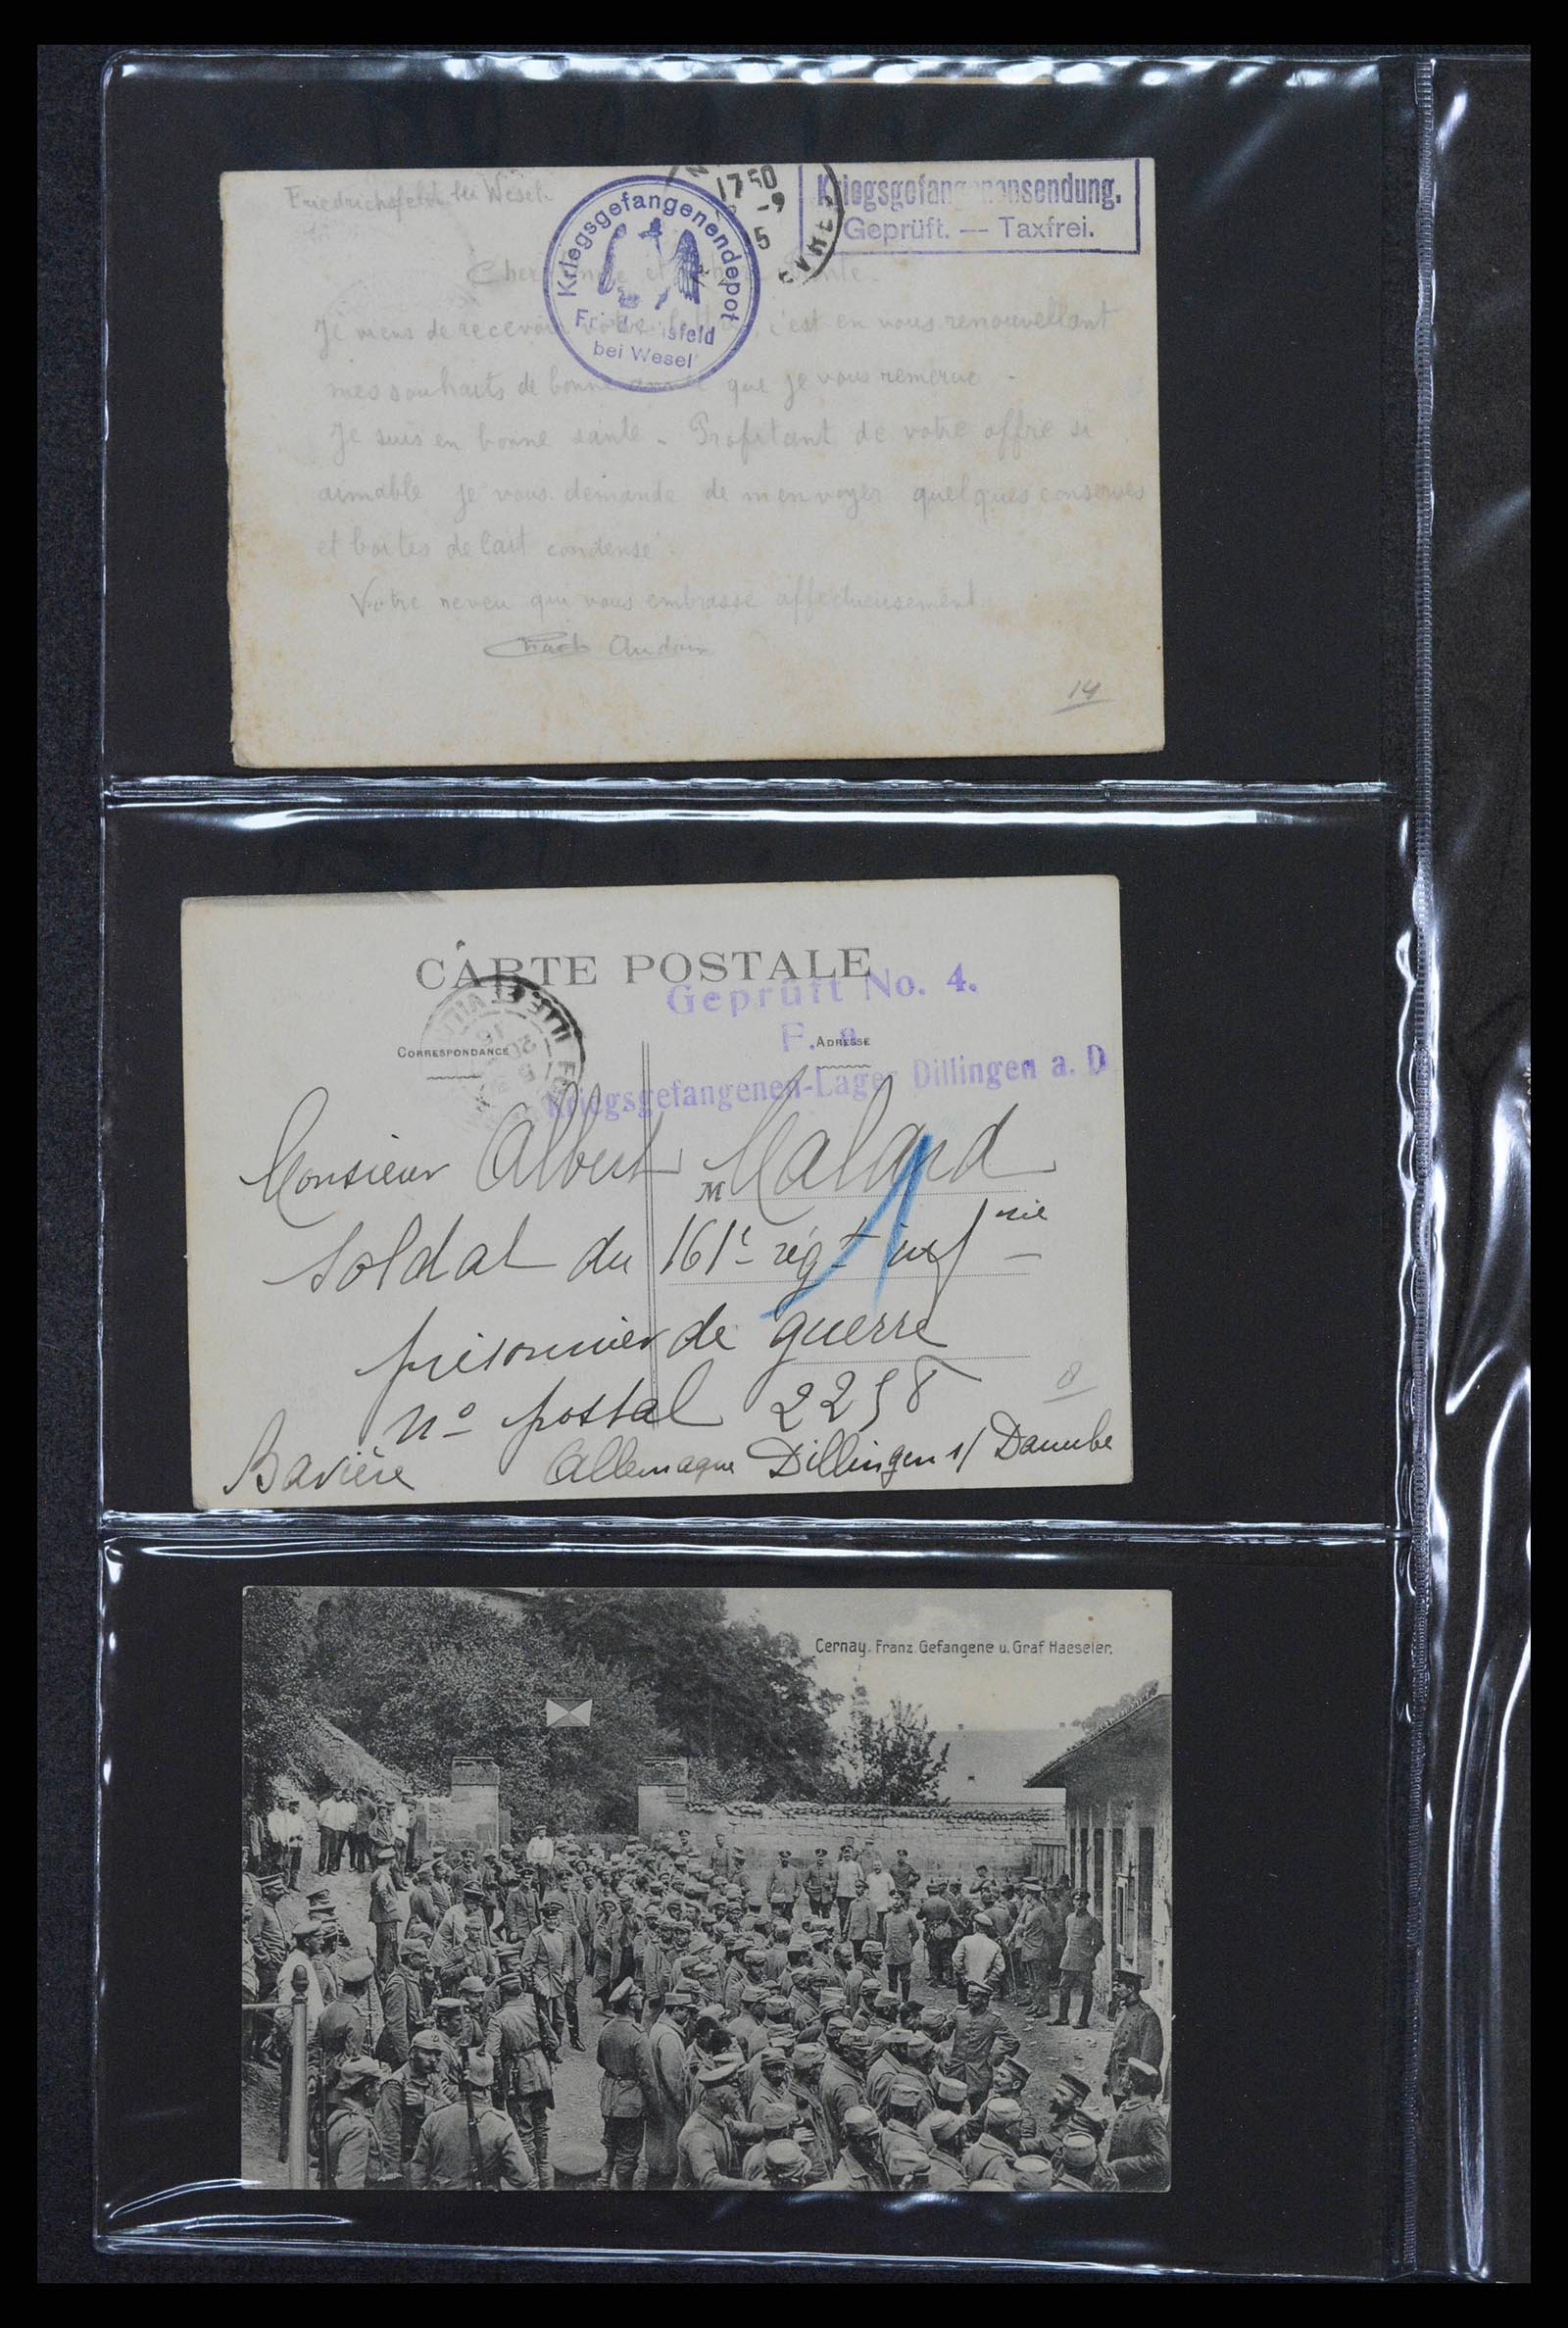 Friedrichsfeld bei Wesel.
17 50
-9
5
Kriegsgefangenensendung.
Geprüft. — Taxfrei.
Kriegsgefangenendepot
Friedrichsfeld
bei Wesel
Cher Oncle et chère Tante.
Je viens de recevoir votre lettre, c'est en vous renouvellant
mes souhaits de bonne année que je vous remercie -
Je suis en bonne santé - Profitant de votre offre si
aimable je vous demande de m'envoyer quelques conserves
et boites de lait condensé.
Votre neveu qui vous embrasse affectueusement
14
CARTE POSTALE
Geprüft No. 4.
F. a.
CORRESPONDANCE
ADRESSE
Kriegsgefangenen-Lager Dillingen a. D
Monsieur Albert Malard
M
Soldat du 161e régt infrie
prisonnier de guerre
No postal 2258
8
Bavière Allemagne Dillingen s/ Danube
Cernay. Franz. Gefangene u. Graf Haeseler.